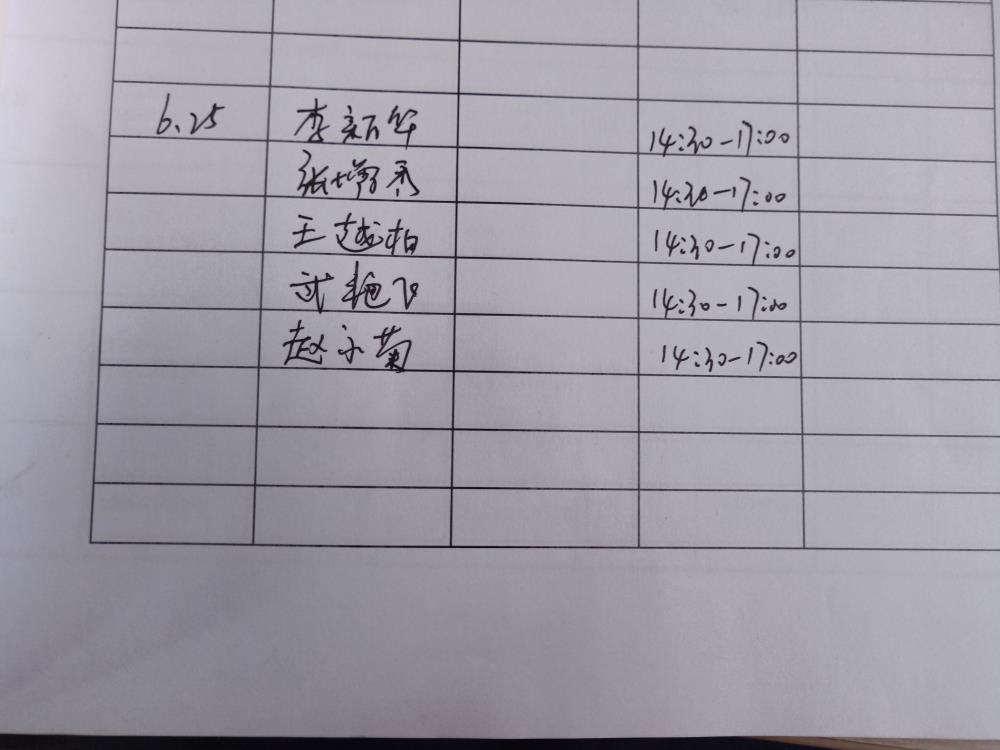 6.25 李新华 14:30-17:00
张增秀 14:30-17:00
王越柏 14:30-17:00
武艳飞 14:30-17:00
赵小菊 14:30-17:00